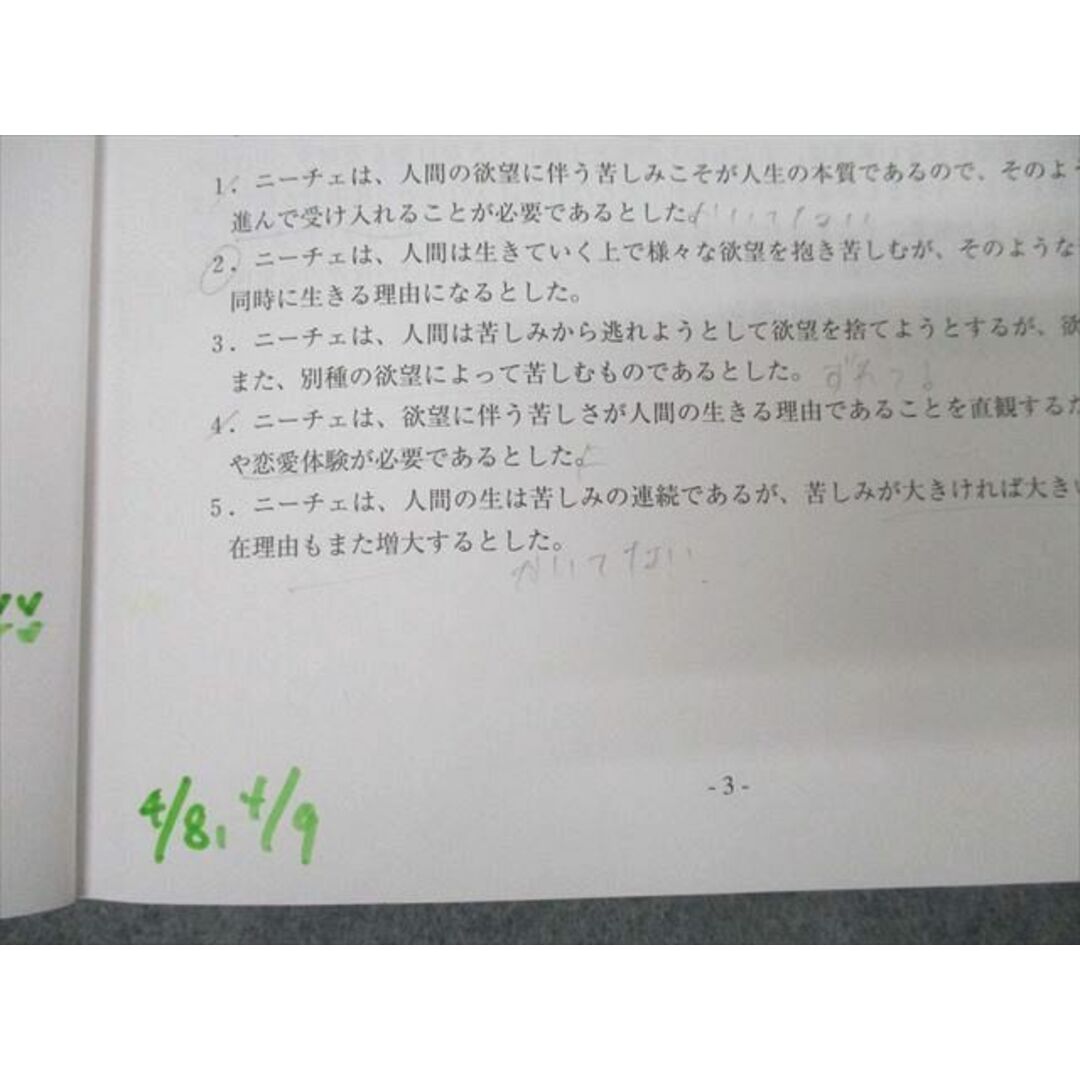 1. ニーチェは、人間の欲望に伴う苦しみこそが人生の本質であるので、そのよ
進んで受け入れることが必要であるとした。かいてない
2. ニーチェは、人間は生きていく上で様々な欲望を抱き苦しむが、そのような
同時に生きる理由になるとした。
3. ニーチェは、人間は苦しみから逃れようとして欲望を捨てようとするが、欲
また、別種の欲望によって苦しむものであるとした。
4. ニーチェは、欲望に伴う苦しさが人間の生きる理由であることを直観するた
や恋愛体験が必要であるとした。
5. ニーチェは、人間の生は苦しみの連続であるが、苦しみが大きければ大きい
在理由もまた増大するとした。
かいてない
- 3 -
4/8, 4/9